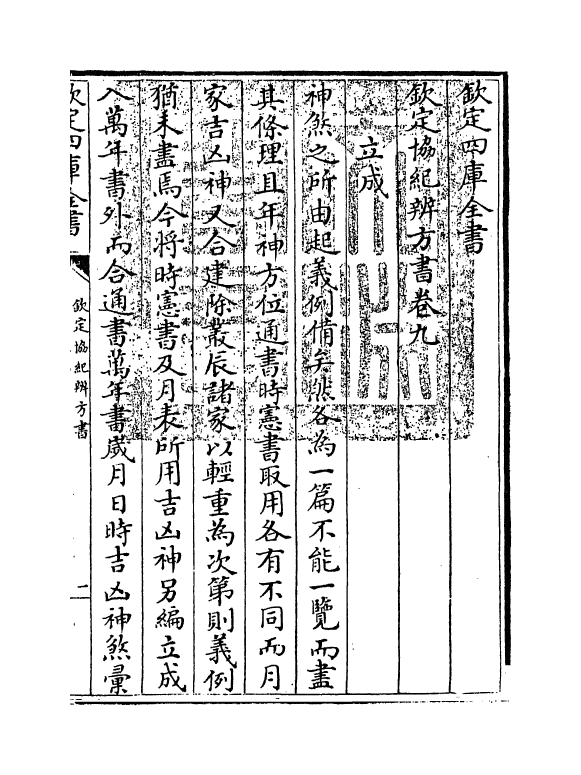 欽定四庫全書
欽定協紀辨方書卷九
立成
神煞之所由起義例備矣然各為一篇不能一覽而盡
其條理且年神方位通書時憲書取用各有不同而月
家吉凶神又合建除叢辰諸家以輕重為次第則義例
猶未盡焉今將時憲書及月表所用吉凶神另編立成
入萬年書外而合通書萬年書歲月日時吉凶神煞彙
欽定四庫全書
欽定協紀辨方書
二